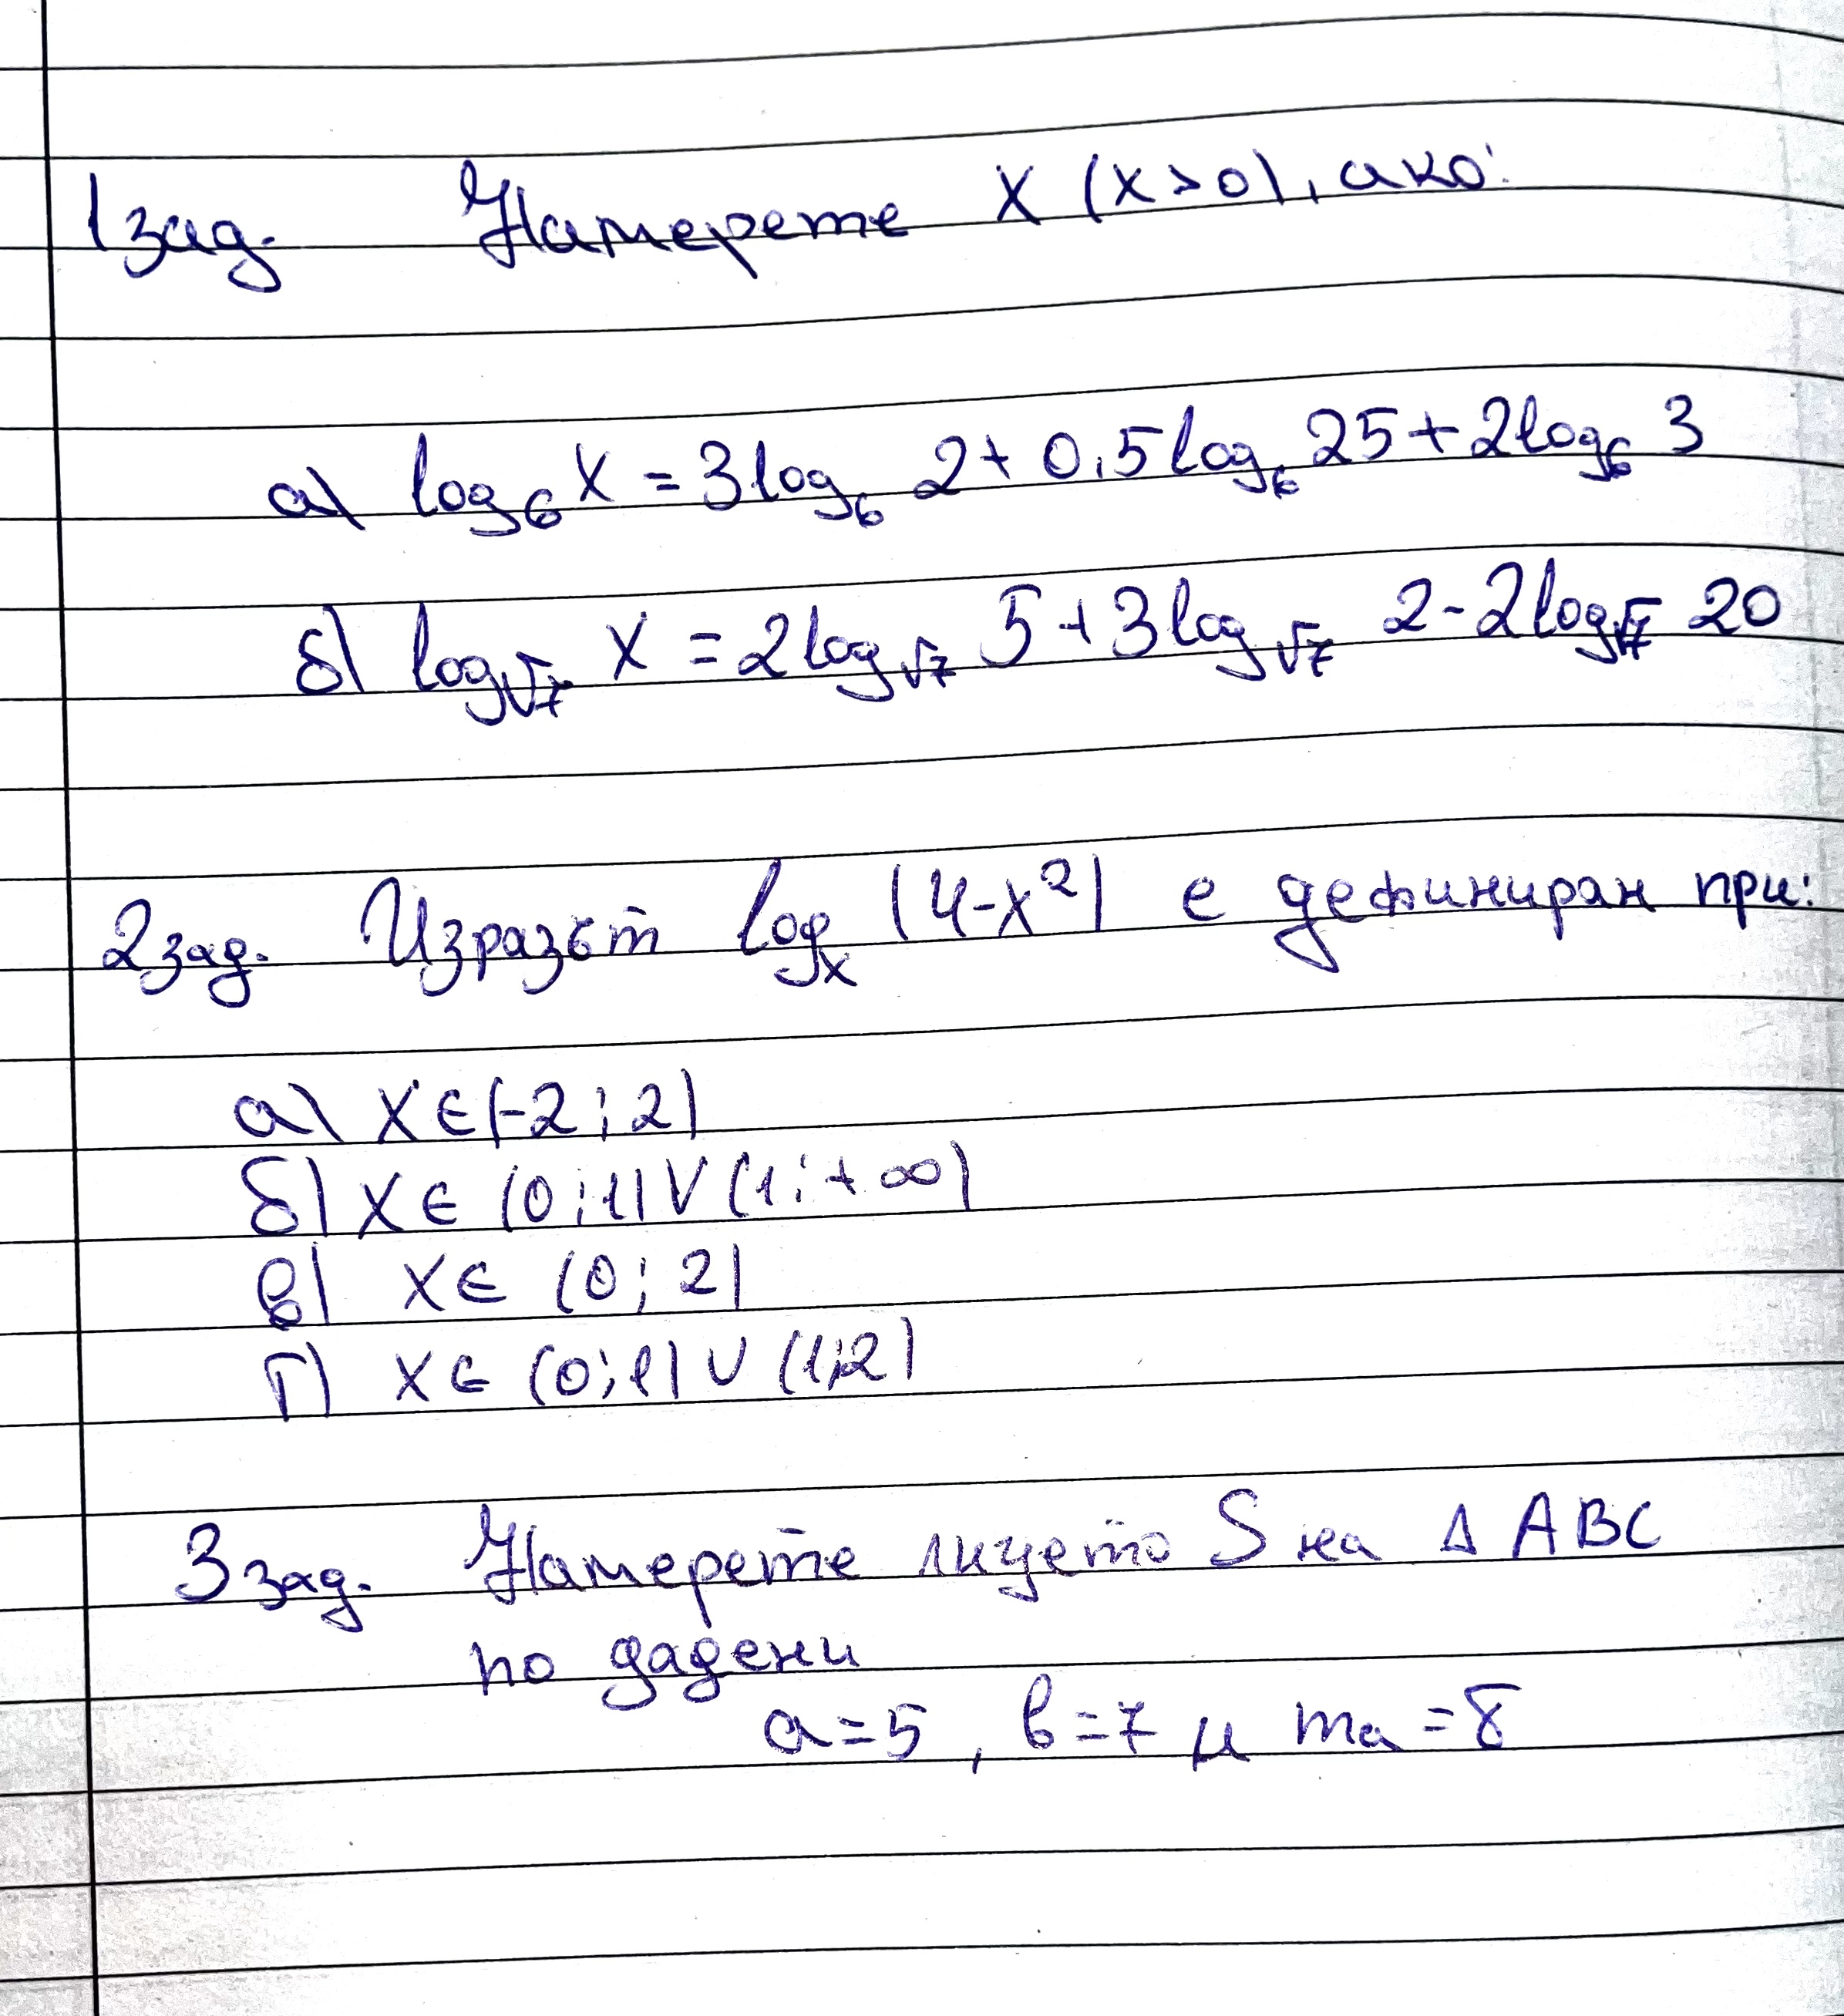 1 зад. Намерете x (x>0), ако:
а) log₆ x = 3log₆ 2 + 0,5log₆ 25 + 2log₆ 3
б) log_√7 x = 2log_√7 5 + 3log_√7 2 - 2log_√7 20
2 зад. Изразът logₓ (4-x²) е дефиниран при:
а) x∈(-2; 2)
б) x∈ (0; 1) ∪ (1; +∞)
в) x∈ (0; 2)
г) x∈ (0; 1) ∪ (1; 2)
3 зад. Намерете лицето S на Δ ABC
по дадени
a=5, b=7 и ma = 8